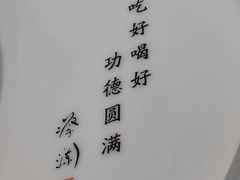 吃好喝好
功德圆满
蔡澜